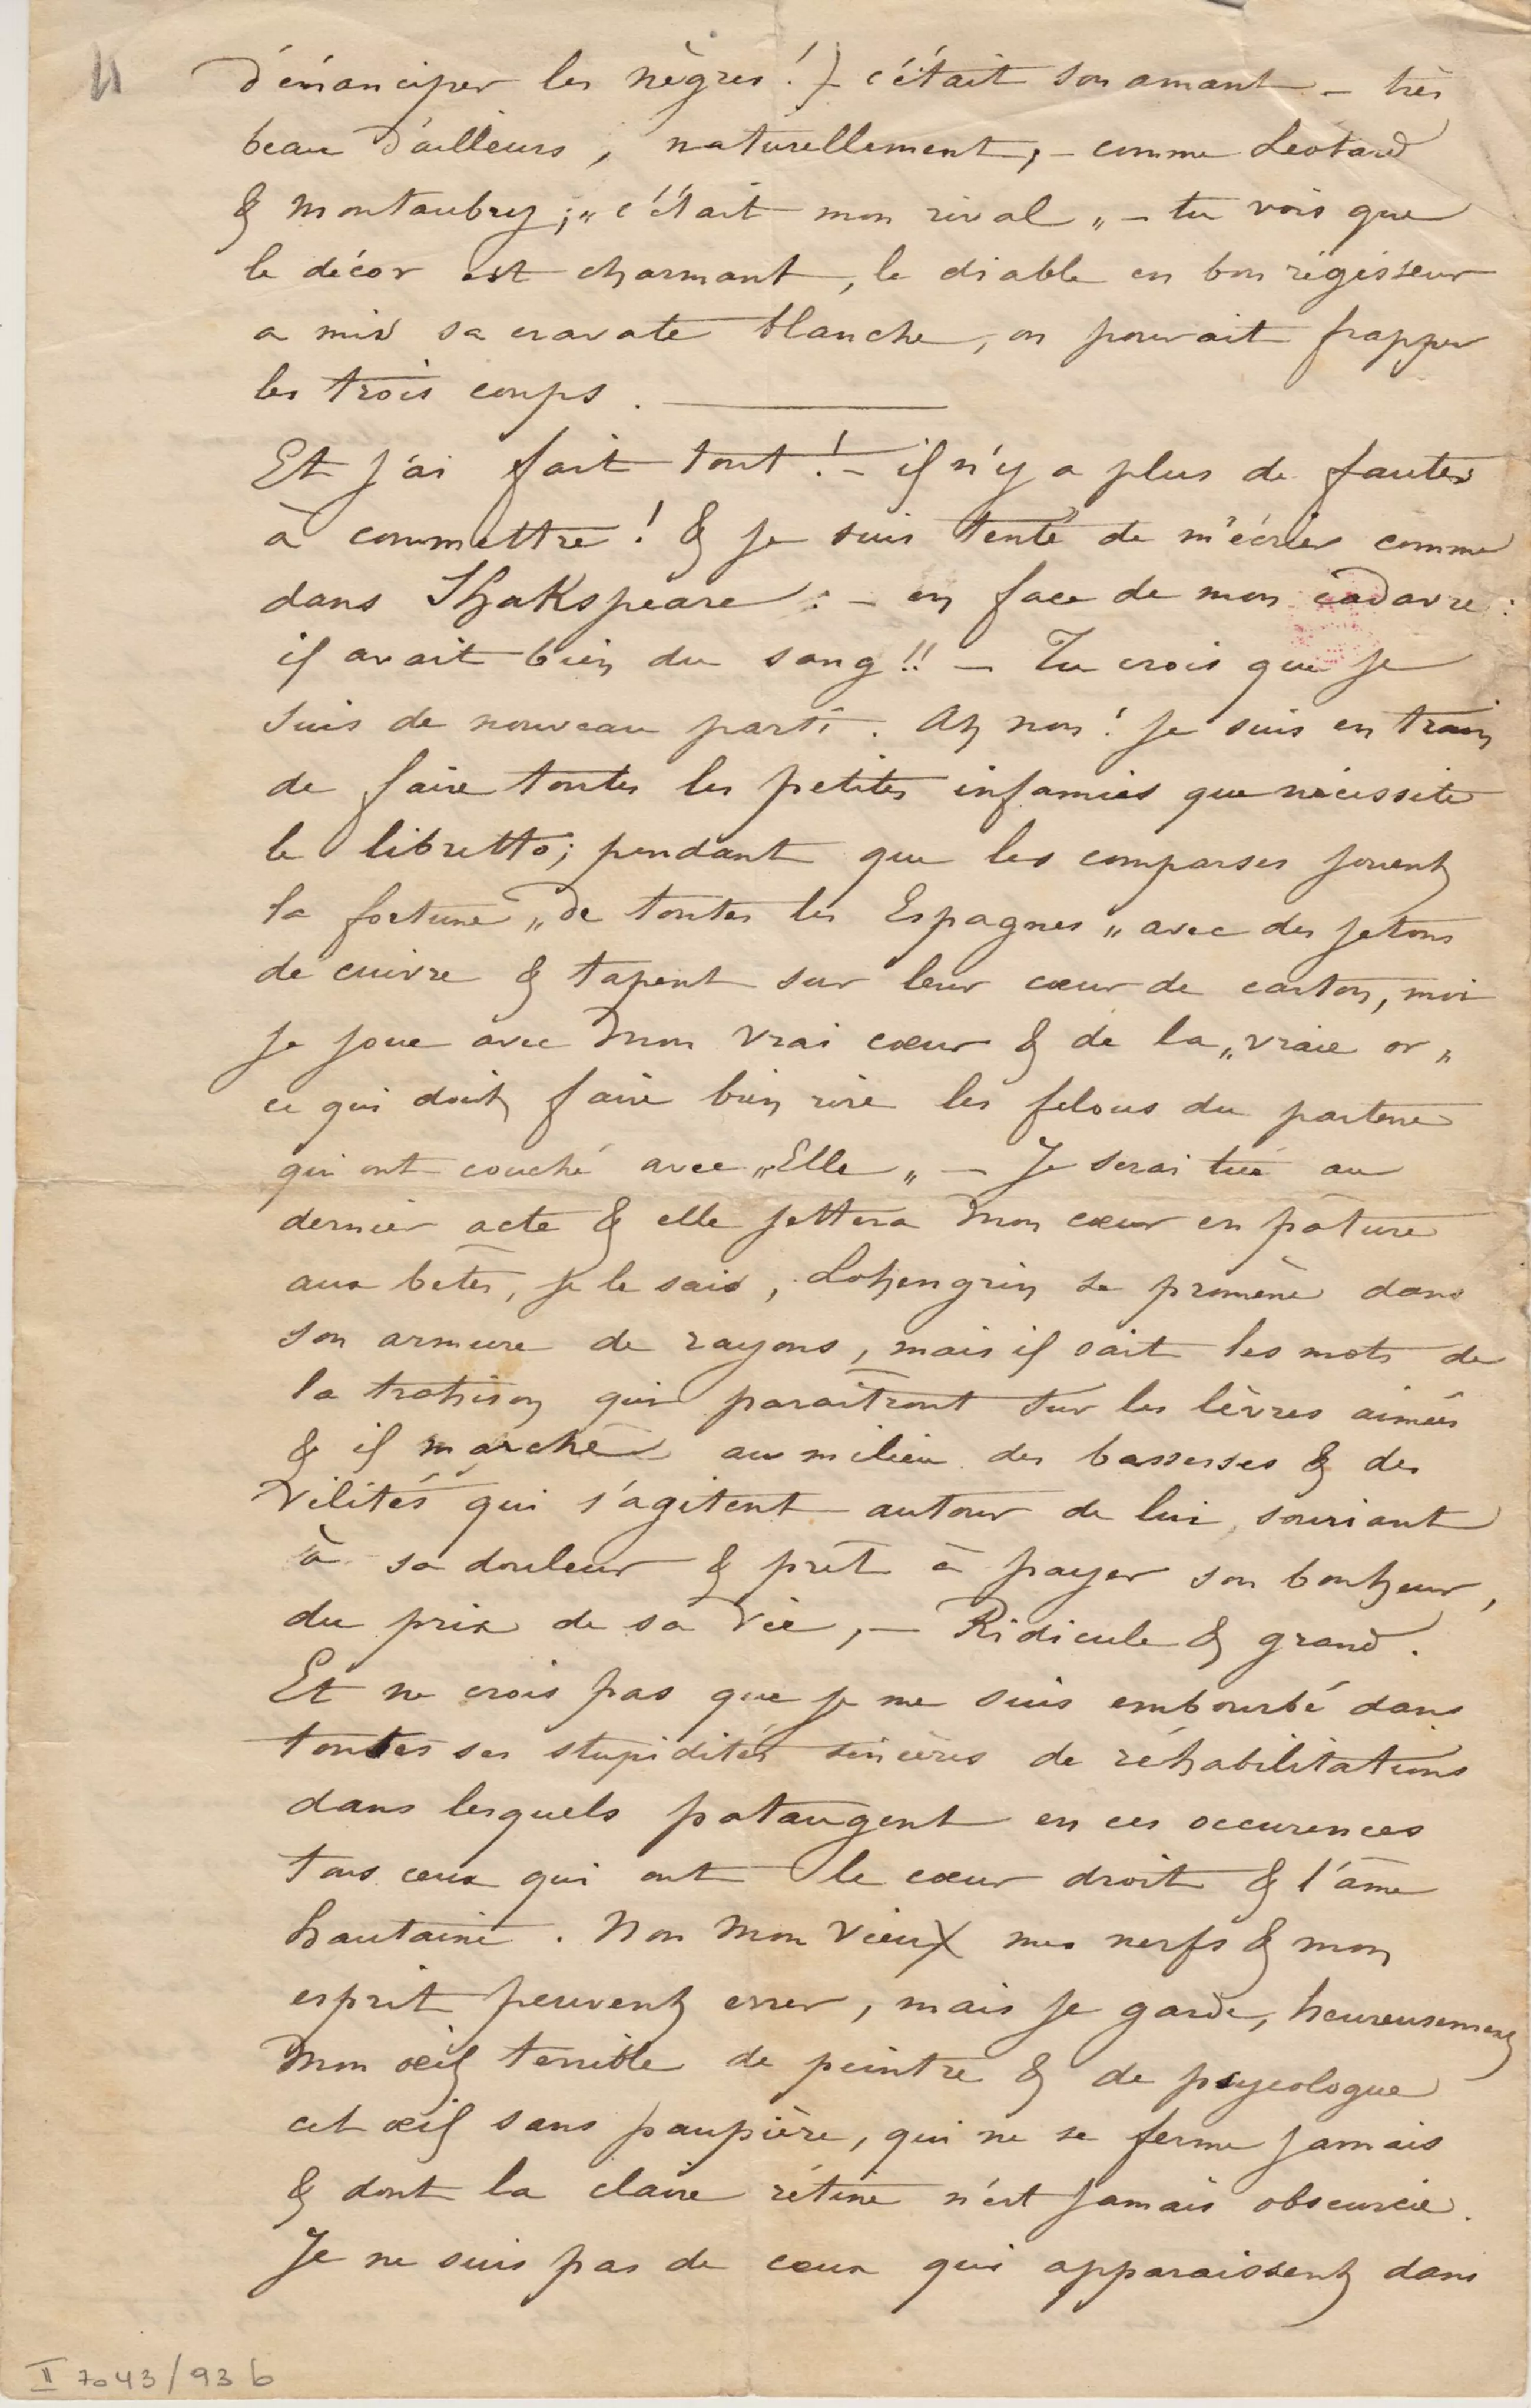 d'émanciper les nègres !) c'était son amant – très
beau d'ailleurs, naturellement, – comme Léotard
& Montaubry ; „c'était mon rival„ – tu vois que
le décor est charmant, le diable en bon régisseur
a mis sa cravate blanche, on pourrait frapper
les trois coups. ———
Et j'ai fait tout ! – il n'y a plus de fautes
à commettre ! & je suis tenté de m'écrier comme
dans Shakspeare : – en face de mon cadavre :
il avait bien du sang !! – Tu crois que je
suis de nouveau parti. Ah non ! je suis en train
de faire toutes les petites infamies que nécessite
le libretto ; pendant que les comparses jouent
la fortune „de toutes les Espagnes„ avec des jetons
de cuivre & tapent sur leur cœur de carton, moi
je joue avec mon vrai cœur & de la „vraie or„
ce qui doit faire bien rire les filous du parterre
qui ont couché avec „Elle„ – Je serai tué au
dernier acte & elle jettera mon cœur en pâture
aux bêtes, je le sais, Lohengrin se promène dans
son armure de rayons, mais il sait les mots de
la trahison qui paraîtront sur les lèvres aimées
& il marche au milieu des bassesses & des
vilités qui s'agitent autour de lui, souriant
à sa douleur & prêt à payer son bonheur,
du prix de sa vie, – Ridicule & grand.
Et ne crois pas que je me suis embourbé dans
toutes ses stupidités sincères de réhabilitations
dans lesquels pataugent en ces occurences
tous ceux qui ont le cœur droit & l'âme
hautaine. Non mon vieux mes nerfs & mon
esprit peuvent errer, mais je garde, heureusement
mon œil terrible de peintre & de psycologue
cet œil sans paupière, qui ne se ferme jamais
& dont la claire rétine n'est jamais obscurcie.
Je ne suis pas de ceux qui apparaissent dans
II 7043/93 b